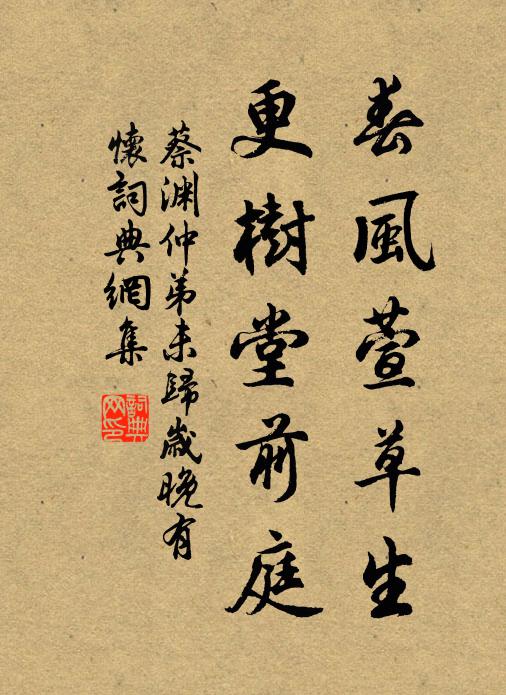 春風萱草生
更樹堂前庭
蔡淵仲弟未歸歲晚有
懷詞典網集
詞典
网印